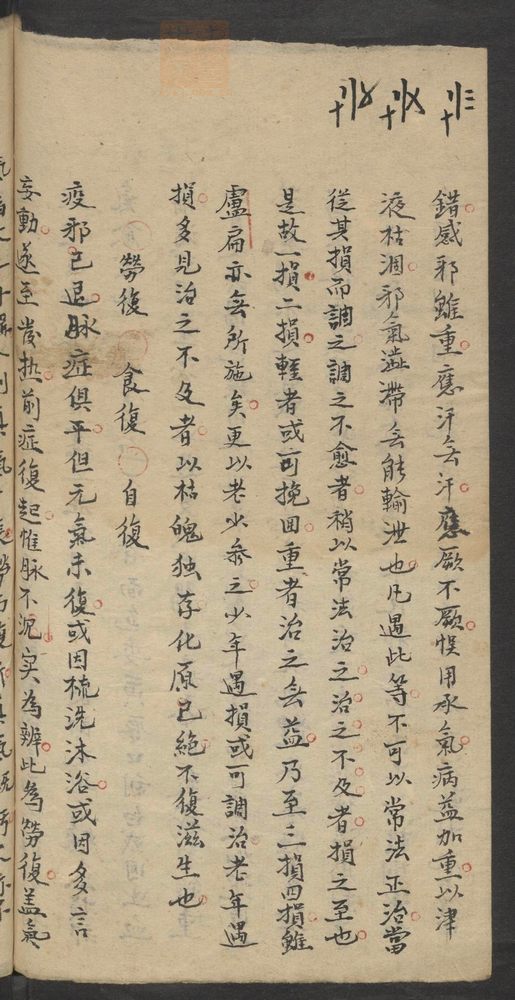 錯感邪雖重應汗無汗應厥不厥悮用承氣病益加重以津
液枯涸邪氣澁滯無能輸泄也凡遇此等不可以常法正治當
從其損而調之調之不愈者稍以常法治之治之不及者損之至也
是故一損二損輕者或可挽回重者治之無益乃至三損四損雖
盧扁亦無所施矣更以老少參之少年遇損或可調治老年遇
損多見治之不及者以枯魄独存化原已絕不復滋生也
勞復 食復 自復
疫邪已退脉症俱平但元氣未復或因梳洗沐浴或因多言
妄動遂至發热前症復起惟脉不沉实為辨此為勞復盖氣